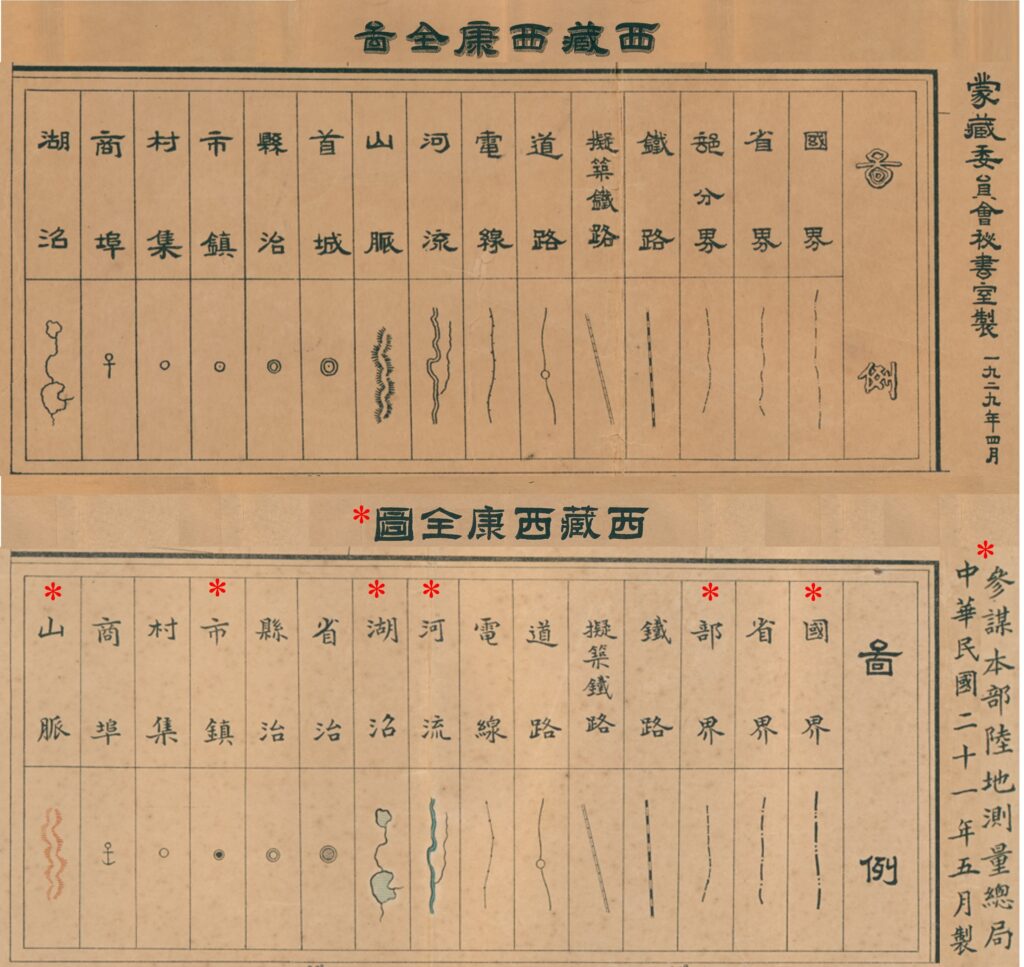 西藏西康全啚
蒙藏委員會祕書室製 一九二九年四月
啚例
國界
省界
部分界
鐵路
擬築鐵路
道路
電線
河流
山脈
首城
縣治
市鎮
村集
商埠
湖沼
西藏西康全圖*
*參謀本部陸地測量總局
中華民國二十一年五月製
啚例
*國界
省界
*部界
鐵路
擬築鐵路
道路
電線
*河流
*湖沼
省治
縣治
*市鎮
村集
商埠
*山脈